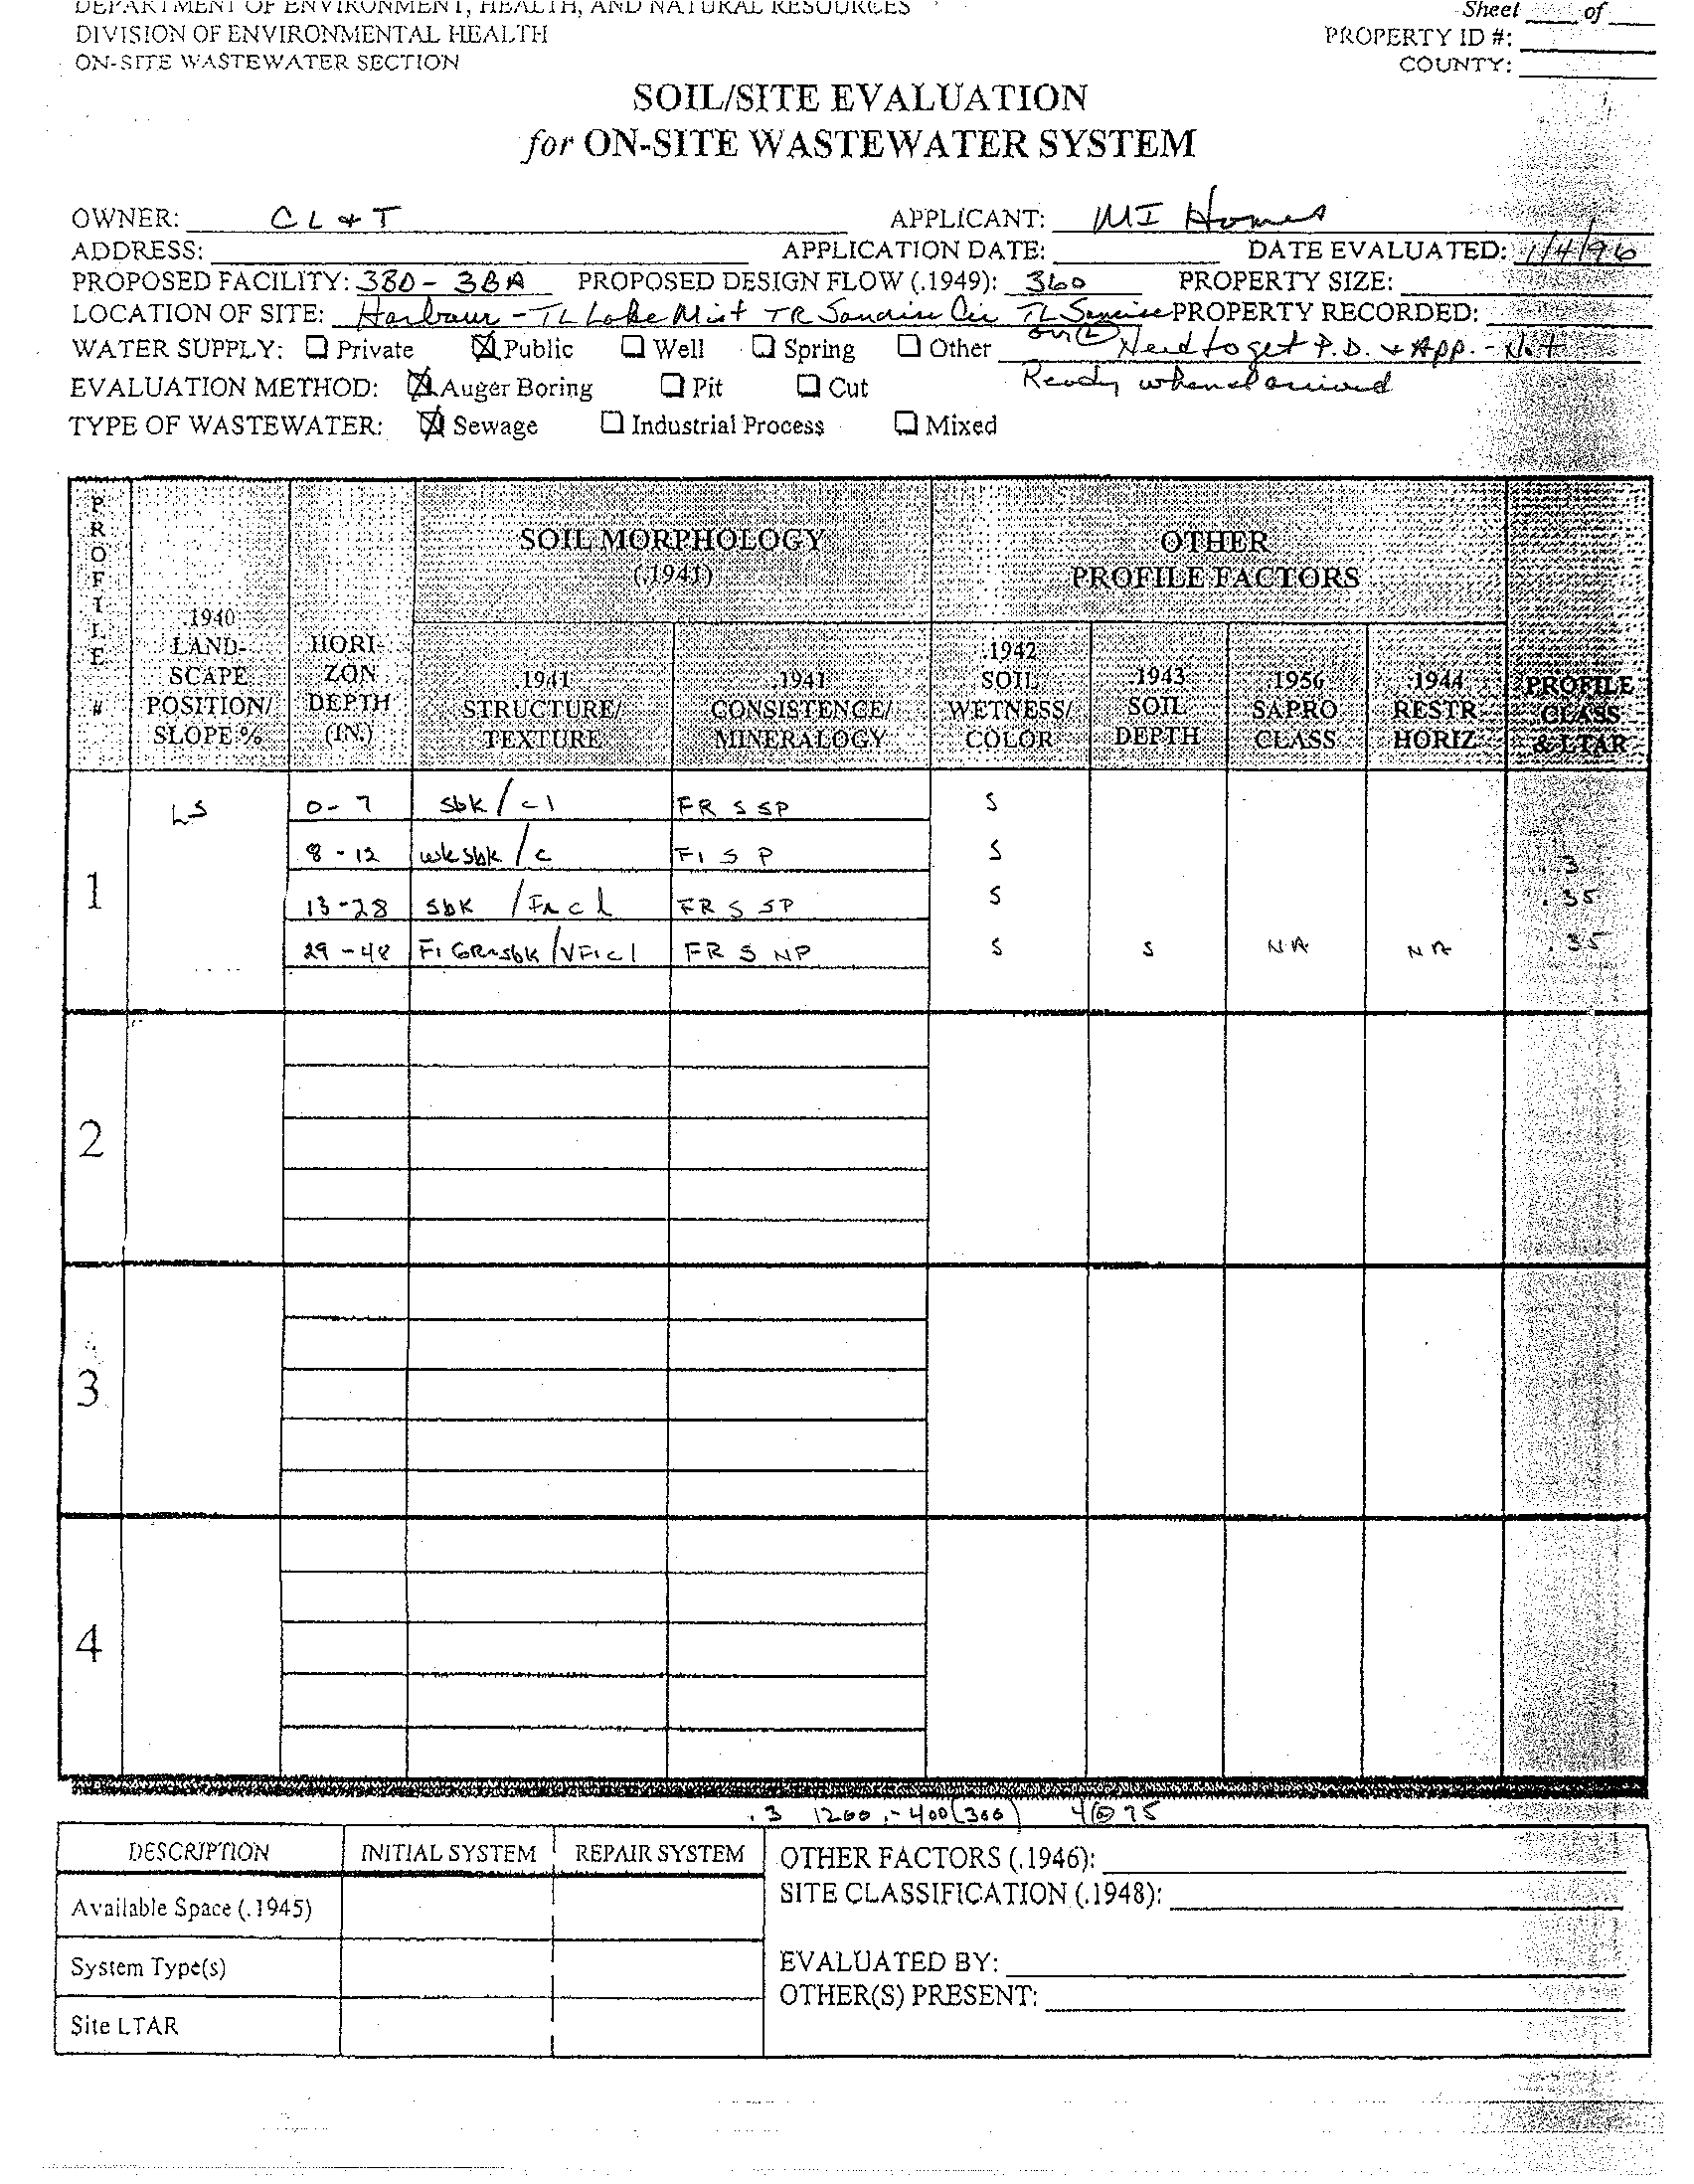 DEPARTMENT OF ENVIRONMENT, HEALTH, AND NATURAL RESOURCES
Sheet ____ of ____
DIVISION OF ENVIRONMENTAL HEALTH
PROPERTY ID #:
ON-SITE WASTEWATER SECTION
COUNTY:
SOIL/SITE EVALUATION
for ON-SITE WASTEWATER SYSTEM
OWNER: CL & T APPLICANT: MI Homes
ADDRESS: APPLICATION DATE: DATE EVALUATED: 1/4/96
PROPOSED FACILITY: 380 - 3BA PROPOSED DESIGN FLOW (.1949): 360 PROPERTY SIZE:
LOCATION OF SITE: Harbour - TL Lake Mist TR Sundise Cir TL PROPERTY RECORDED:
WATER SUPPLY: ☐ Private ☒ Public ☐ Well ☐ Spring ☐ Other on L Need to get P.D. & App. - Not
EVALUATION METHOD: ☒ Auger Boring ☐ Pit ☐ Cut Ready when I arrived
TYPE OF WASTEWATER: ☒ Sewage ☐ Industrial Process ☐ Mixed
PROFILE #
.1940 LAND-SCAPE POSITION/ SLOPE %
HORI-ZON DEPTH (IN.)
SOIL MORPHOLOGY
(.1941)
.1941 STRUCTURE/ TEXTURE
.1941 CONSISTENCE/ MINERALOGY
OTHER
PROFILE FACTORS
.1942 SOIL WETNESS/ COLOR
.1943 SOIL DEPTH
.1956 SAPRO CLASS
.1944 RESTR HORIZ
PROFILE CLASS & LTAR
1 LS 0-7 sbk/cl FR S SP S
8-12 wk sbk/c FI S P S .3
13-28 sbk /Fn cl FR S SP S .35
29-48 FI GR-sbk/VFicl FR S NP S S NA NA .35
2
3
4
.3 1200 - 400(300) 4@75
DESCRIPTION INITIAL SYSTEM REPAIR SYSTEM
Available Space (.1945)
System Type(s)
Site LTAR
OTHER FACTORS (.1946):
SITE CLASSIFICATION (.1948):
EVALUATED BY:
OTHER(S) PRESENT: